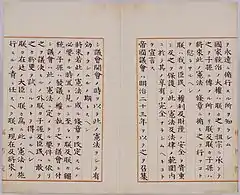 永遠ニ循行スル所ヲ知ラシム
國家統治ノ大權ハ朕カ之ヲ祖宗ニ承ケ
テ之ヲ子孫ニ傳フル所ナリ朕及朕カ子孫ハ
將來此ノ憲法ノ條章ニ循ヒ之ヲ行フコト
ヲ愆ラサルヘシ
朕ハ我カ臣民ノ權利及財產ノ安全ヲ貴重シ
及之ヲ保護シ此ノ憲法及法律ノ範圍內
ニ於テ其ノ享有ヲ完全ナラシムヘキコト
ヲ宣言ス
帝國議會ハ明治二十三年ヲ以テ之ヲ召集
シ議會開會ノ時ヲ以テ此ノ憲法ヲシテ有
效ナラシムルノ期トスヘシ
將來若此ノ憲法ノ或ル條章ヲ改定スルノ
必要ナル時宜ヲ見ルニ至ラハ朕及朕カ繼
統ノ子孫ハ發議ノ權ヲ執リ之ヲ議會ニ付
シ議會ハ此ノ憲法ニ定メタル要件ニ依リ
之ヲ議決スルノ外朕カ子孫及臣民ハ敢テ
之カ紛更ヲ試ミルコトヲ得サルヘシ
朕カ在廷ノ大臣ハ朕カ爲ニ此ノ憲法ヲ施
行スルノ責ニ任スヘク朕カ現在及將來ノ